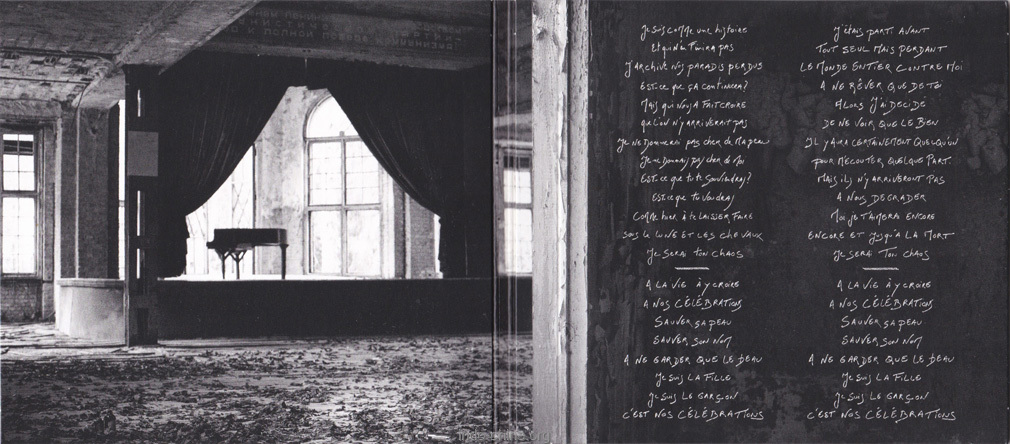 Je suis comme une histoire
Et qui ne finira pas
J'archive nos paradis perdus
Est-ce que ça continuera?
Mais qui nous a fait croire
Que l'on n'y arriverait pas
Je ne donnerai pas cher de ma peau
Je ne donnerai pas cher de moi
Est-ce que tu te souviendras?
Est-ce que tu voudras
Comme hier à te laisser faire
Sous la lune et les chevaux
Je serai ton chaos
A la vie à y croire
A nos CÉLÉBRATIONS
Sauver sa peau
Sauver son nom
A ne garder que le beau
Je suis la fille
Je suis le garçon
C'est nos CÉLÉBRATIONS
J'étais parti avant
Tout seul mais perdant
Le monde entier contre moi
A ne rêver que de toi
Alors j'ai décidé
De ne voir que le bien
Il y aura certainement quelqu'un
Pour m'écouter quelque part
Mais ils n'y arriveront pas
A nous dégrader
Moi je t'aimerai encore
Encore et jusqu'à la mort
Je serai ton chaos
A la vie à y croire
A nos CÉLÉBRATIONS
Sauver sa peau
Sauver son nom
A ne garder que le beau
Je suis la fille
Je suis le garçon
C'est nos CÉLÉBRATIONS